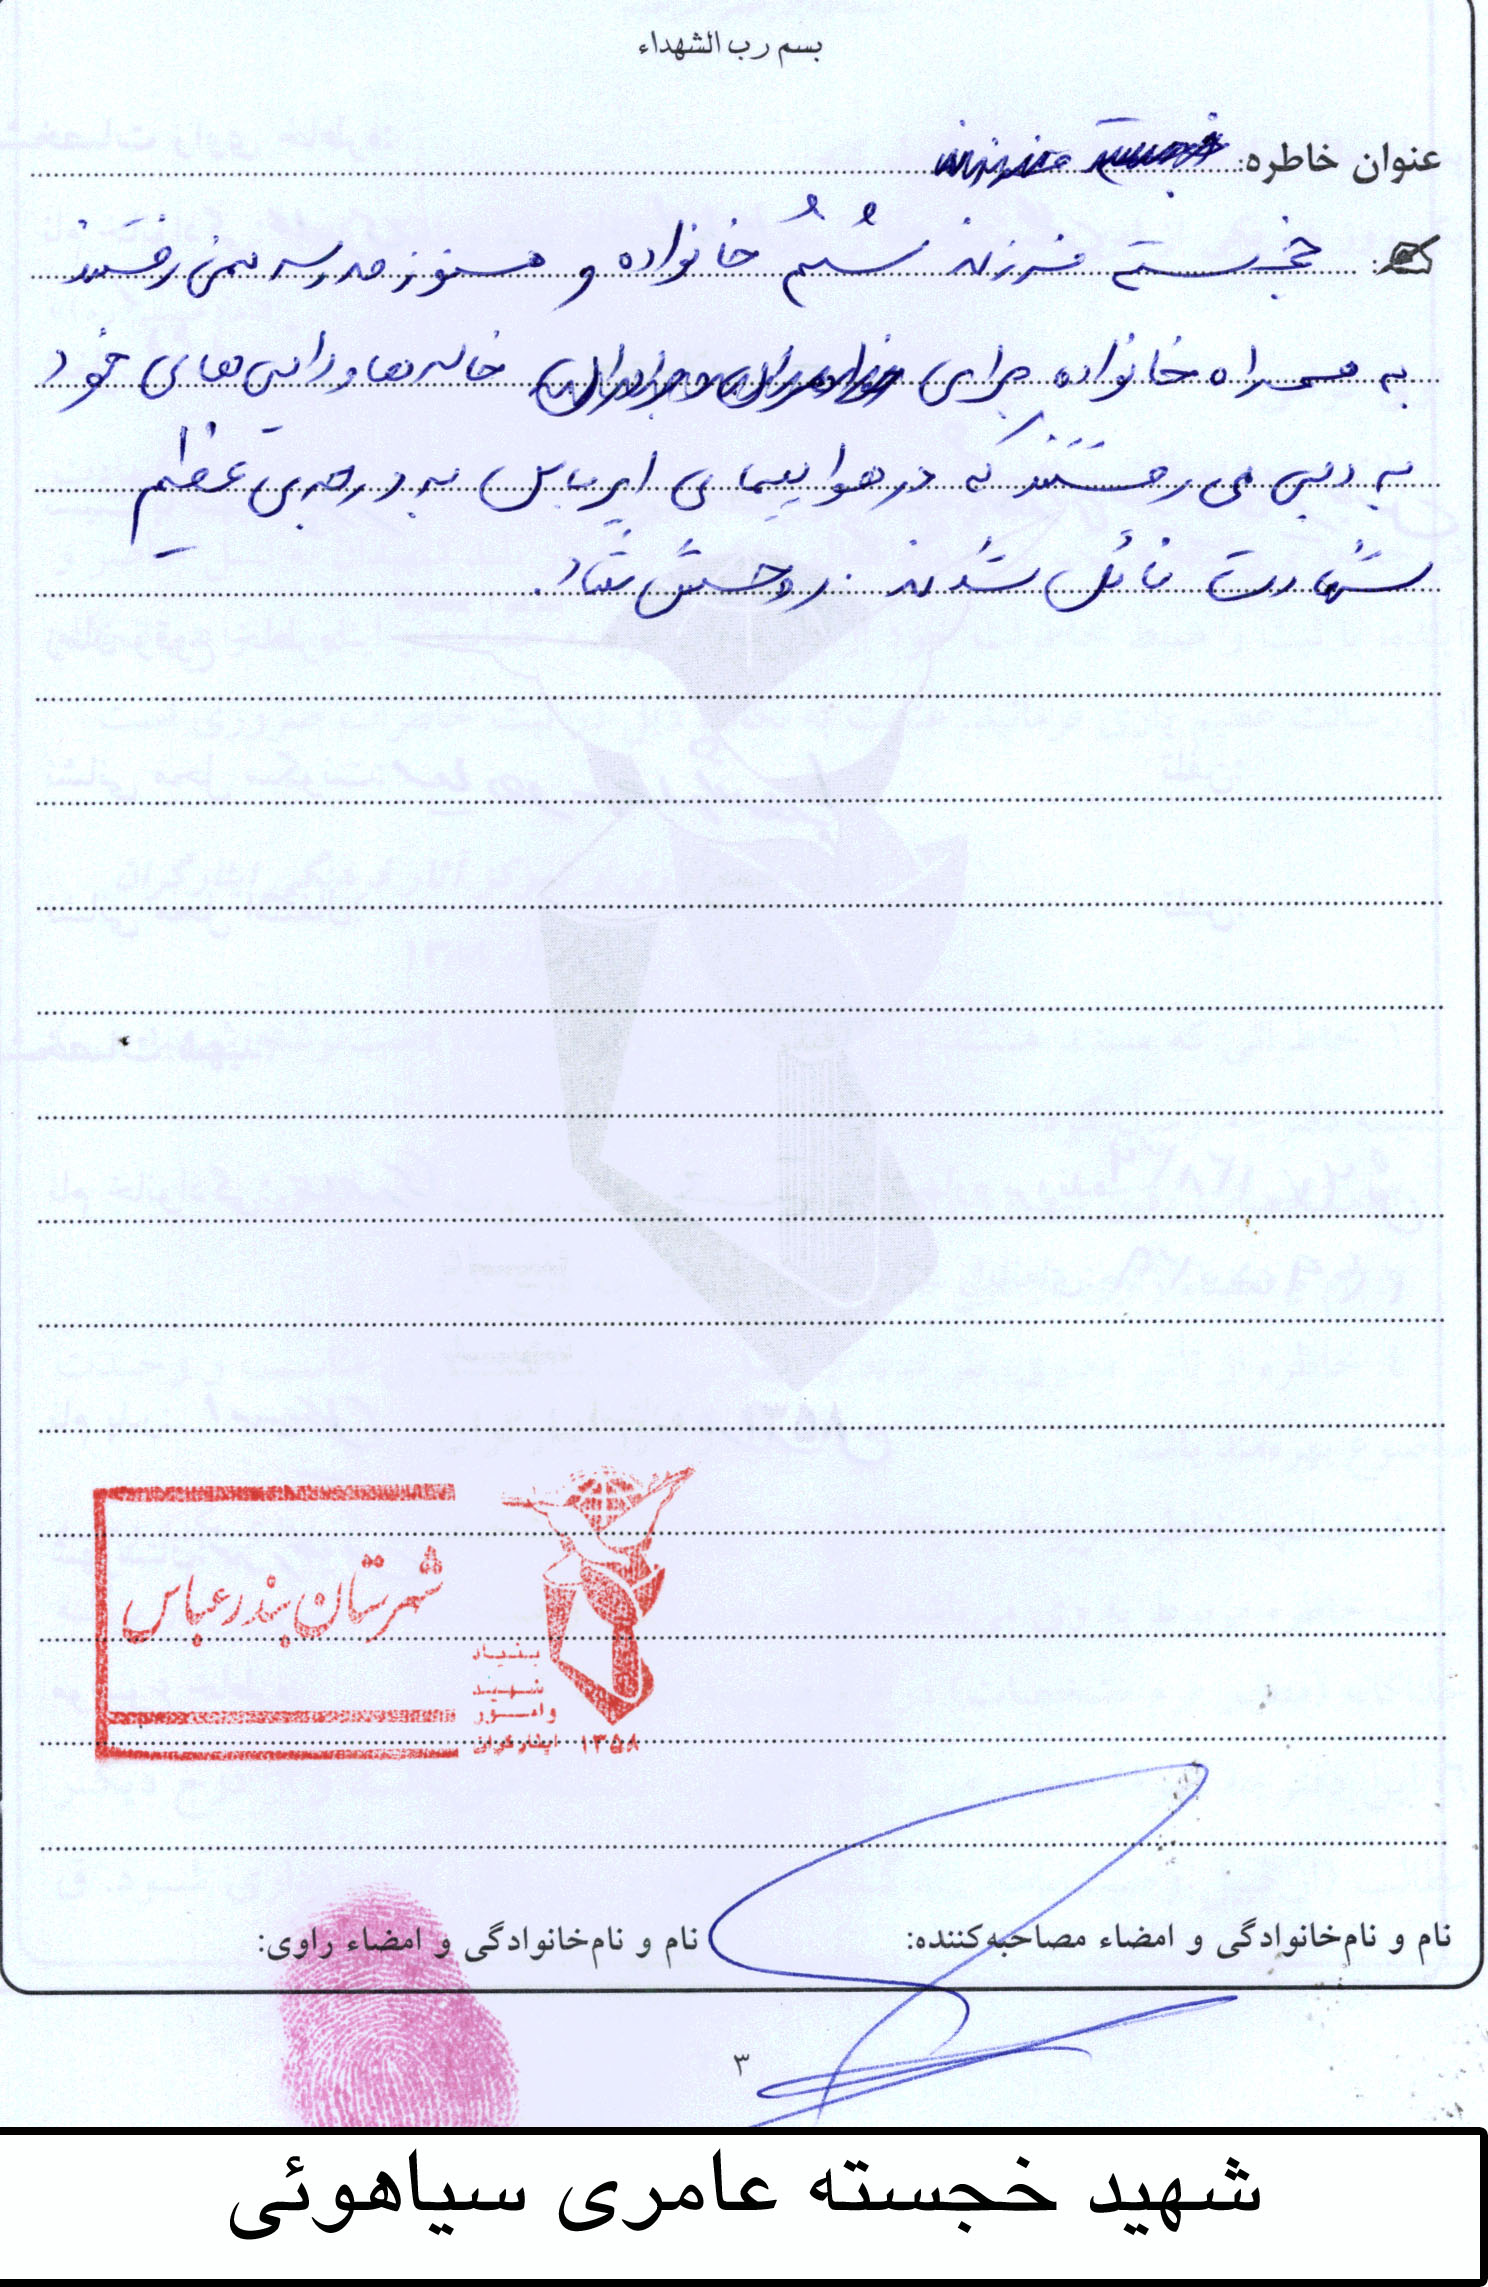 بسم رب الشهداء
عنوان خاطره:
خجسته فرزند ششم خانواده و هنوز مدرسه نمی رفتند
به همراه خانواده برای خاله ها و دایی های خود
به دبی می رفتند که در هواپیمای ایرباس به درجه‌ی عظیم
شهادت نائل شدند. روحش شاد.
شهرستان بندرعباس
بنیاد
شهید
و امور
ایثارگران ۱۳۵۸
نام و نام‌خانوادگی و امضاء مصاحبه‌کننده: نام و نام‌خانوادگی و امضاء راوی:
۳
شهید خجسته عامری سیاهوئی